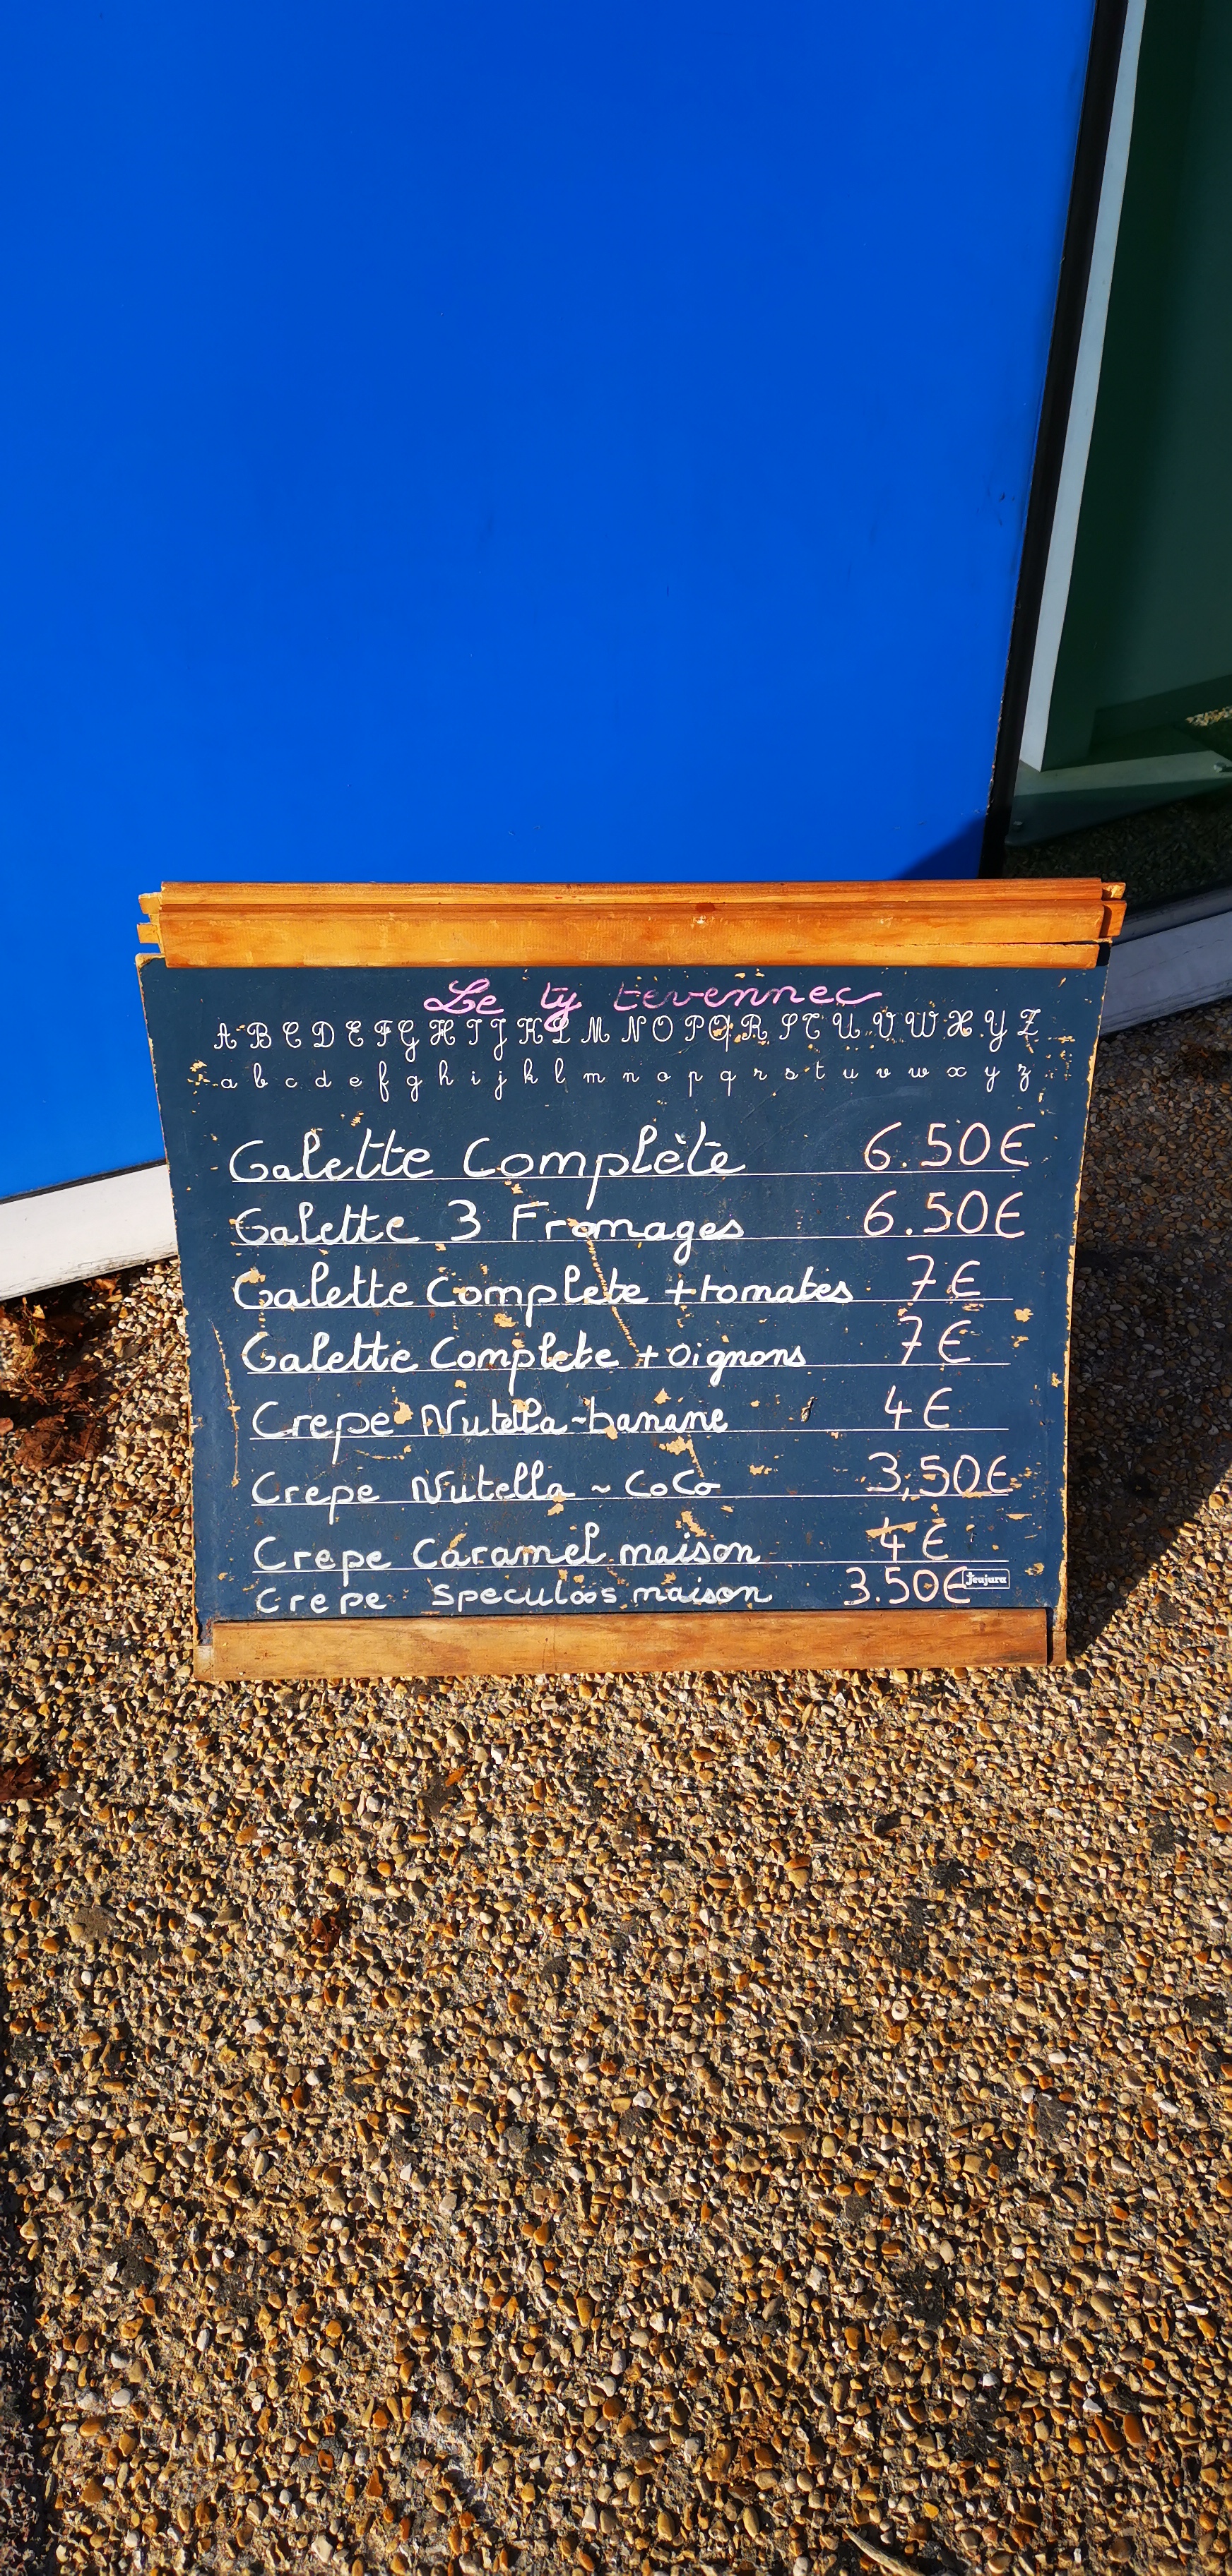 Le ty tevennec
A B C D E F G H I J K L M N O P Q R S T U V W X Y Z
a b c d e f g h i j k l m n o p q r s t u v w x y z
Galette Complète 6.50€
Galette 3 Fromages 6.50€
Galette Complete + tomates 7€
Galette Complete + oignons 7€
Crepe Nutella-banane 4€
Crepe Nutella ~ CoCo 3,50€
Crepe Caramel maison 4€
Crepe Speculoos maison 3.50€
Jeujura